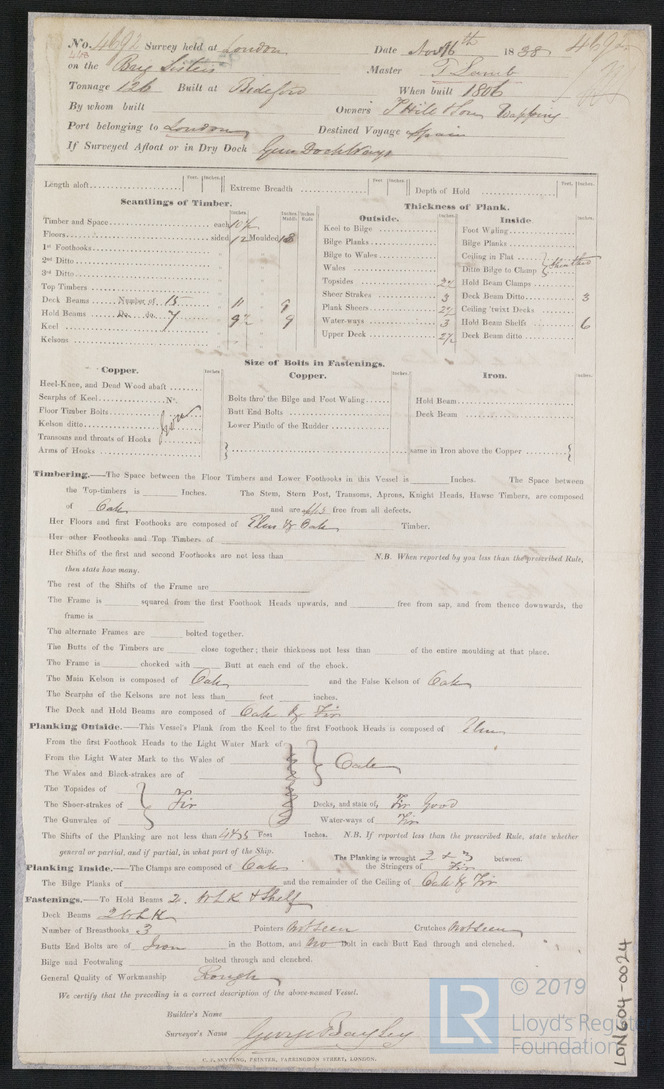 No. 4692 Survey held at London Date Nov 16th 1838 4692
on the Brig Sisters Master T Lamb
Tonnage 126 Built at Bideford When built 1806
By whom built Owners Hill & Son Wapping
Port belonging to London Destined Voyage Spain
If Surveyed Afloat or in Dry Dock Gun Dock Wapg
Length aloft Feet. Inches. Extreme Breadth Feet Inches. Depth of Hold Feet. Inches.
Scantlings of Timber.
Timber and Space each
Floors sided 12 Moulded
1st Foothooks
2nd Ditto
3rd Ditto
Top Timbers
Deck Beams Number of 15 11 9
Hold Beams Do. do. 7 9
Keel
Kelsons
Thickness of Plank.
Outside.
Keel to Bilge
Bilge Planks
Bilge to Wales
Wales
Topsides
Sheer Strakes 3
Plank Sheers
Water-ways 3
Upper Deck
Inside
Foot Waling
Bilge Planks
Ceiling in Flat
Ditto Bilge to Clamp
Hold Beam Clamps
Deck Beam Ditto 3
Ceiling 'twixt Decks
Hold Beam Shelfs 6
Deck Beam ditto
Size of Bolts in Fastenings.
Copper.
Heel-Knee, and Dead Wood abaft
Scarphs of Keel No.
Floor Timber Bolts
Kelson ditto Iron
Transoms and throats of Hooks
Arms of Hooks
Copper.
Bolts thro' the Bilge and Foot Waling
Butt End Bolts
Lower Pintle of the Rudder
Iron.
Hold Beam
Deck Beam
same in Iron above the Copper
Timbering.—The Space between the Floor Timbers and Lower Foothooks in this Vessel is Inches. The Space between
the Top-timbers is Inches. The Stem, Stern Post, Transoms, Aprons, Knight Heads, Hawse Timbers, are composed
of Oak and are free from all defects.
Her Floors and first Foothooks are composed of Elm & Oak Timber.
Her other Foothooks and Top Timbers of
Her Shifts of the first and second Foothooks are not less than N.B. When reported by you less than the prescribed Rule,
then state how many.
The rest of the Shifts of the Frame are
The Frame is squared from the first Foothook Heads upwards, and free from sap, and from thence downwards, the
frame is
The alternate Frames are bolted together.
The Butts of the Timbers are close together; their thickness not less than of the entire moulding at that place.
The Frame is chocked with Butt at each end of the chock.
The Main Kelson is composed of Oak and the False Kelson of Oak
The Scarphs of the Kelsons are not less than feet inches.
The Deck and Hold Beams are composed of Oak & Fir
Planking Outside.—This Vessel's Plank from the Keel to the first Foothook Heads is composed of Elm
From the first Foothook Heads to the Light Water Mark of
From the Light Water Mark to the Wales of Oak
The Wales and Block-strakes are of
The Topsides of
The Sheer-strakes of Fir Decks, and state of, Fir Good
The Gunwales of Water-ways of Fir
The Shifts of the Planking are not less than Feet Inches. N.B. If reported less than the prescribed Rule, state whether
general or partial, and if partial, in what part of the Ship. The Planking is wrought 2 & 3 between.
Planking Inside.—The Clamps are composed of Oak the Stringers of Fir
The Bilge Planks of and the remainder of the Ceiling of Oak & Fir
Fastenings.—To Hold Beams 2. W L K & Shelf
Deck Beams 2 W L K
Number of Breasthooks 3 Pointers Not Seen Crutches Not Seen
Butts End Bolts are of Iron in the Bottom, and No Bolt in each Butt End through and clenched.
Bilge and Footwaling bolted through and clenched.
General Quality of Workmanship Rough
We certify that the preceding is a correct description of the above-named Vessel.
Builder's Name
Surveyor's Name George Bayley
PRINTER, FARRINGDON STREET, LONDON.
LR © 2019
Lloyd's Register
Foundation
LON604-0024